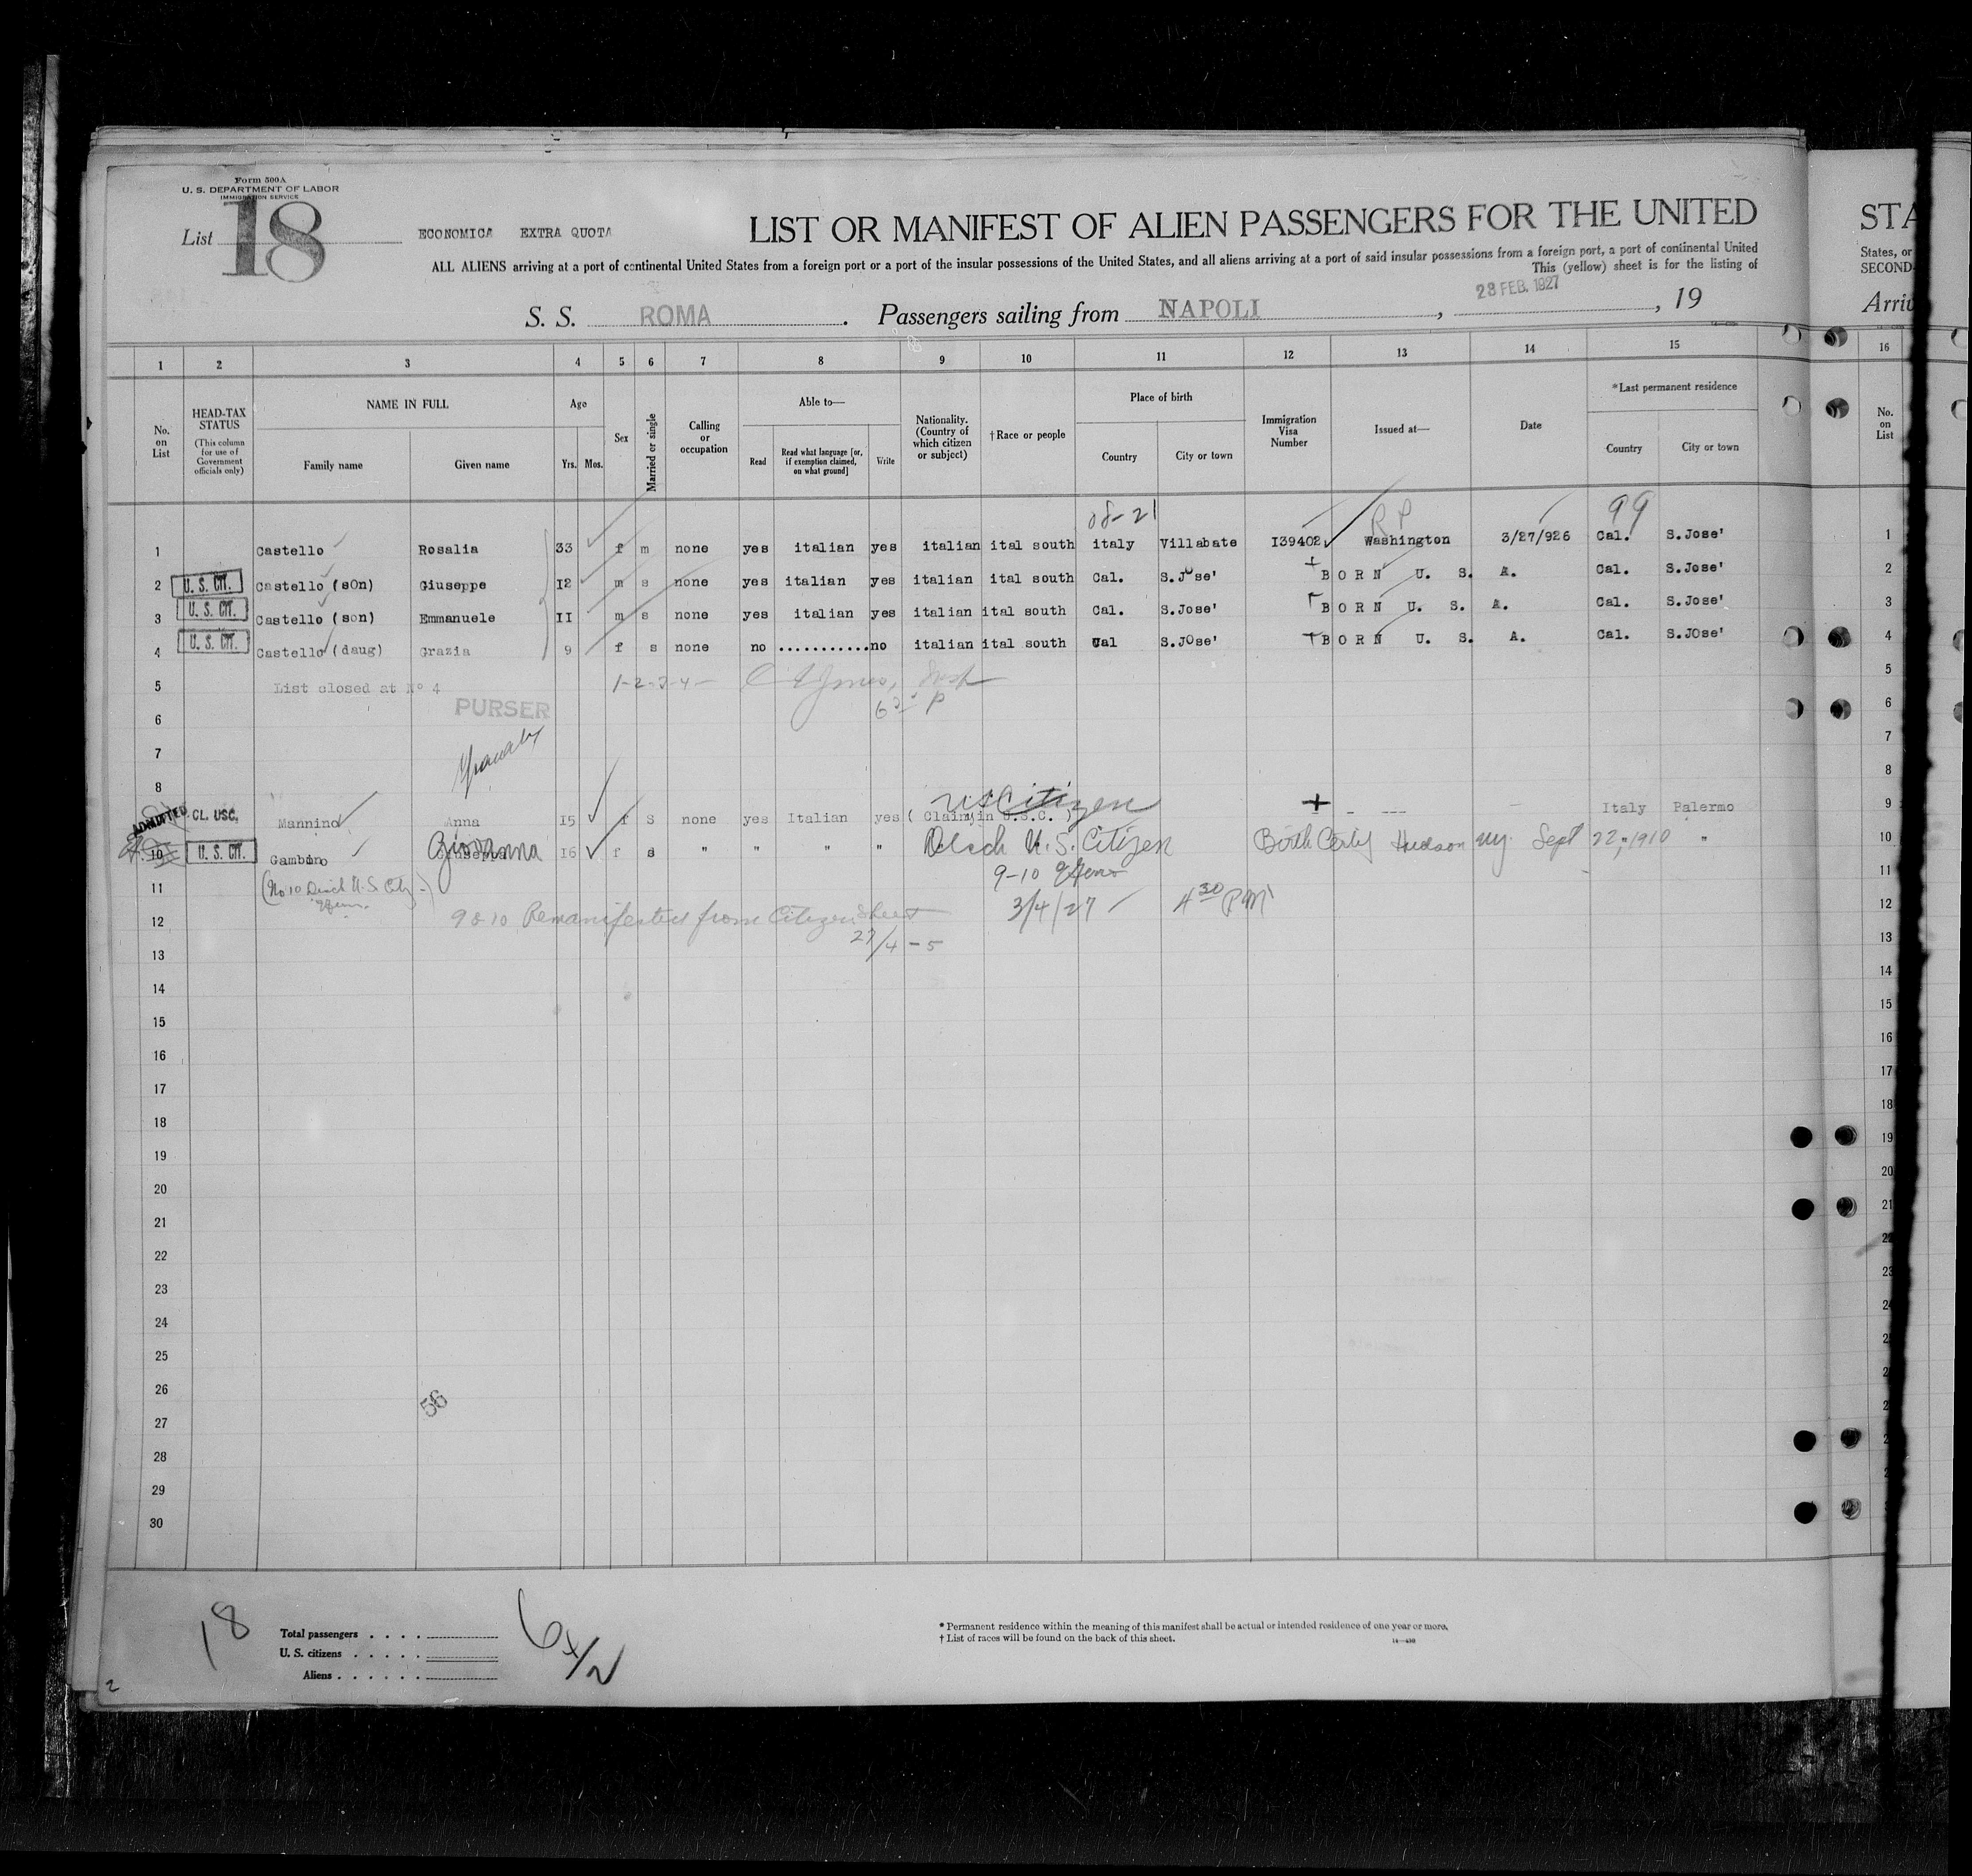 Form 500A
U. S. DEPARTMENT OF LABOR
IMMIGRATION SERVICE
List 18
ECONOMICA EXTRA QUOTA
LIST OR MANIFEST OF ALIEN PASSENGERS FOR THE UNITED
STA
ALL ALIENS arriving at a port of continental United States from a foreign port or a port of the insular possessions of the United States, and all aliens arriving at a port of said insular possessions from a foreign port, a port of continental United
States, or
This (yellow) sheet is for the listing of
SECOND-
S. S. ROMA. Passengers sailing from NAPOLI, 23 FEB. 1927, 19
Arriv
1 2 3 4 5 6 7 8 9 10 11 12 13 14 15 16
No. on List
HEAD-TAX STATUS (This column for use of Government officials only)
NAME IN FULL Family name Given name
Age Yrs. Mos.
Sex
Married or single
Calling or occupation
Able to— Read Read what language [or, if exemption claimed, on what ground] Write
Nationality. (Country of which citizen or subject)
†Race or people
Place of birth Country City or town
Immigration Visa Number
Issued at—
Date
*Last permanent residence Country City or town
No. on List
08-21 RP 99
1 Castello Rosalia 33 f m none yes italian yes italian ital south italy Villabate I39402 Washington 3/27/926 Cal. S.Jose' 1
2 U. S. CIT. Castello (sOn) Giuseppe I2 m s none yes italian yes italian ital south Cal. S.Jose' BORN U. S. A. Cal. S.Jose' 2
3 U. S. CIT. Castello (son) Emmanuele II m s none yes italian yes italian ital south Cal. S.Jose' BORN U. S. A. Cal. S.Jose' 3
4 U. S. CIT. Castello (daug) Grazia 9 f s none no ........... no italian ital south Cal S.JOse' BORN U. S. A. Cal. S.JOse' 4
5 List closed at Nº 4 1-2-3-4- 5
6 PURSER 6
7 7
8 8
U.S. Citizen
9 ADMITTED CL. USC. Mannino Anna I5 f S none yes Italian yes ( Claimin U.S.C. ) + - --- - Italy Palermo 9
10 U. S. CIT. Gambino Giovanna I6 f s " " " " U.S. Citizen Birth Certf Hudson NY. Sept 22, 1910 " 10
11 (No 10 U.S. City) 9-10 11
12 9 & 10 Remanifested from Citizen Sheet 3/4/27 4 30 PM 12
27/4 - 5
13 13
14 14
15 15
16 16
17 17
18 18
19 19
20 20
21 21
22
23 23
24
25
26
56
27
28
29
30
18
Total passengers
U. S. citizens
Aliens
* Permanent residence within the meaning of this manifest shall be actual or intended residence of one year or more.
† List of races will be found on the back of this sheet.
2